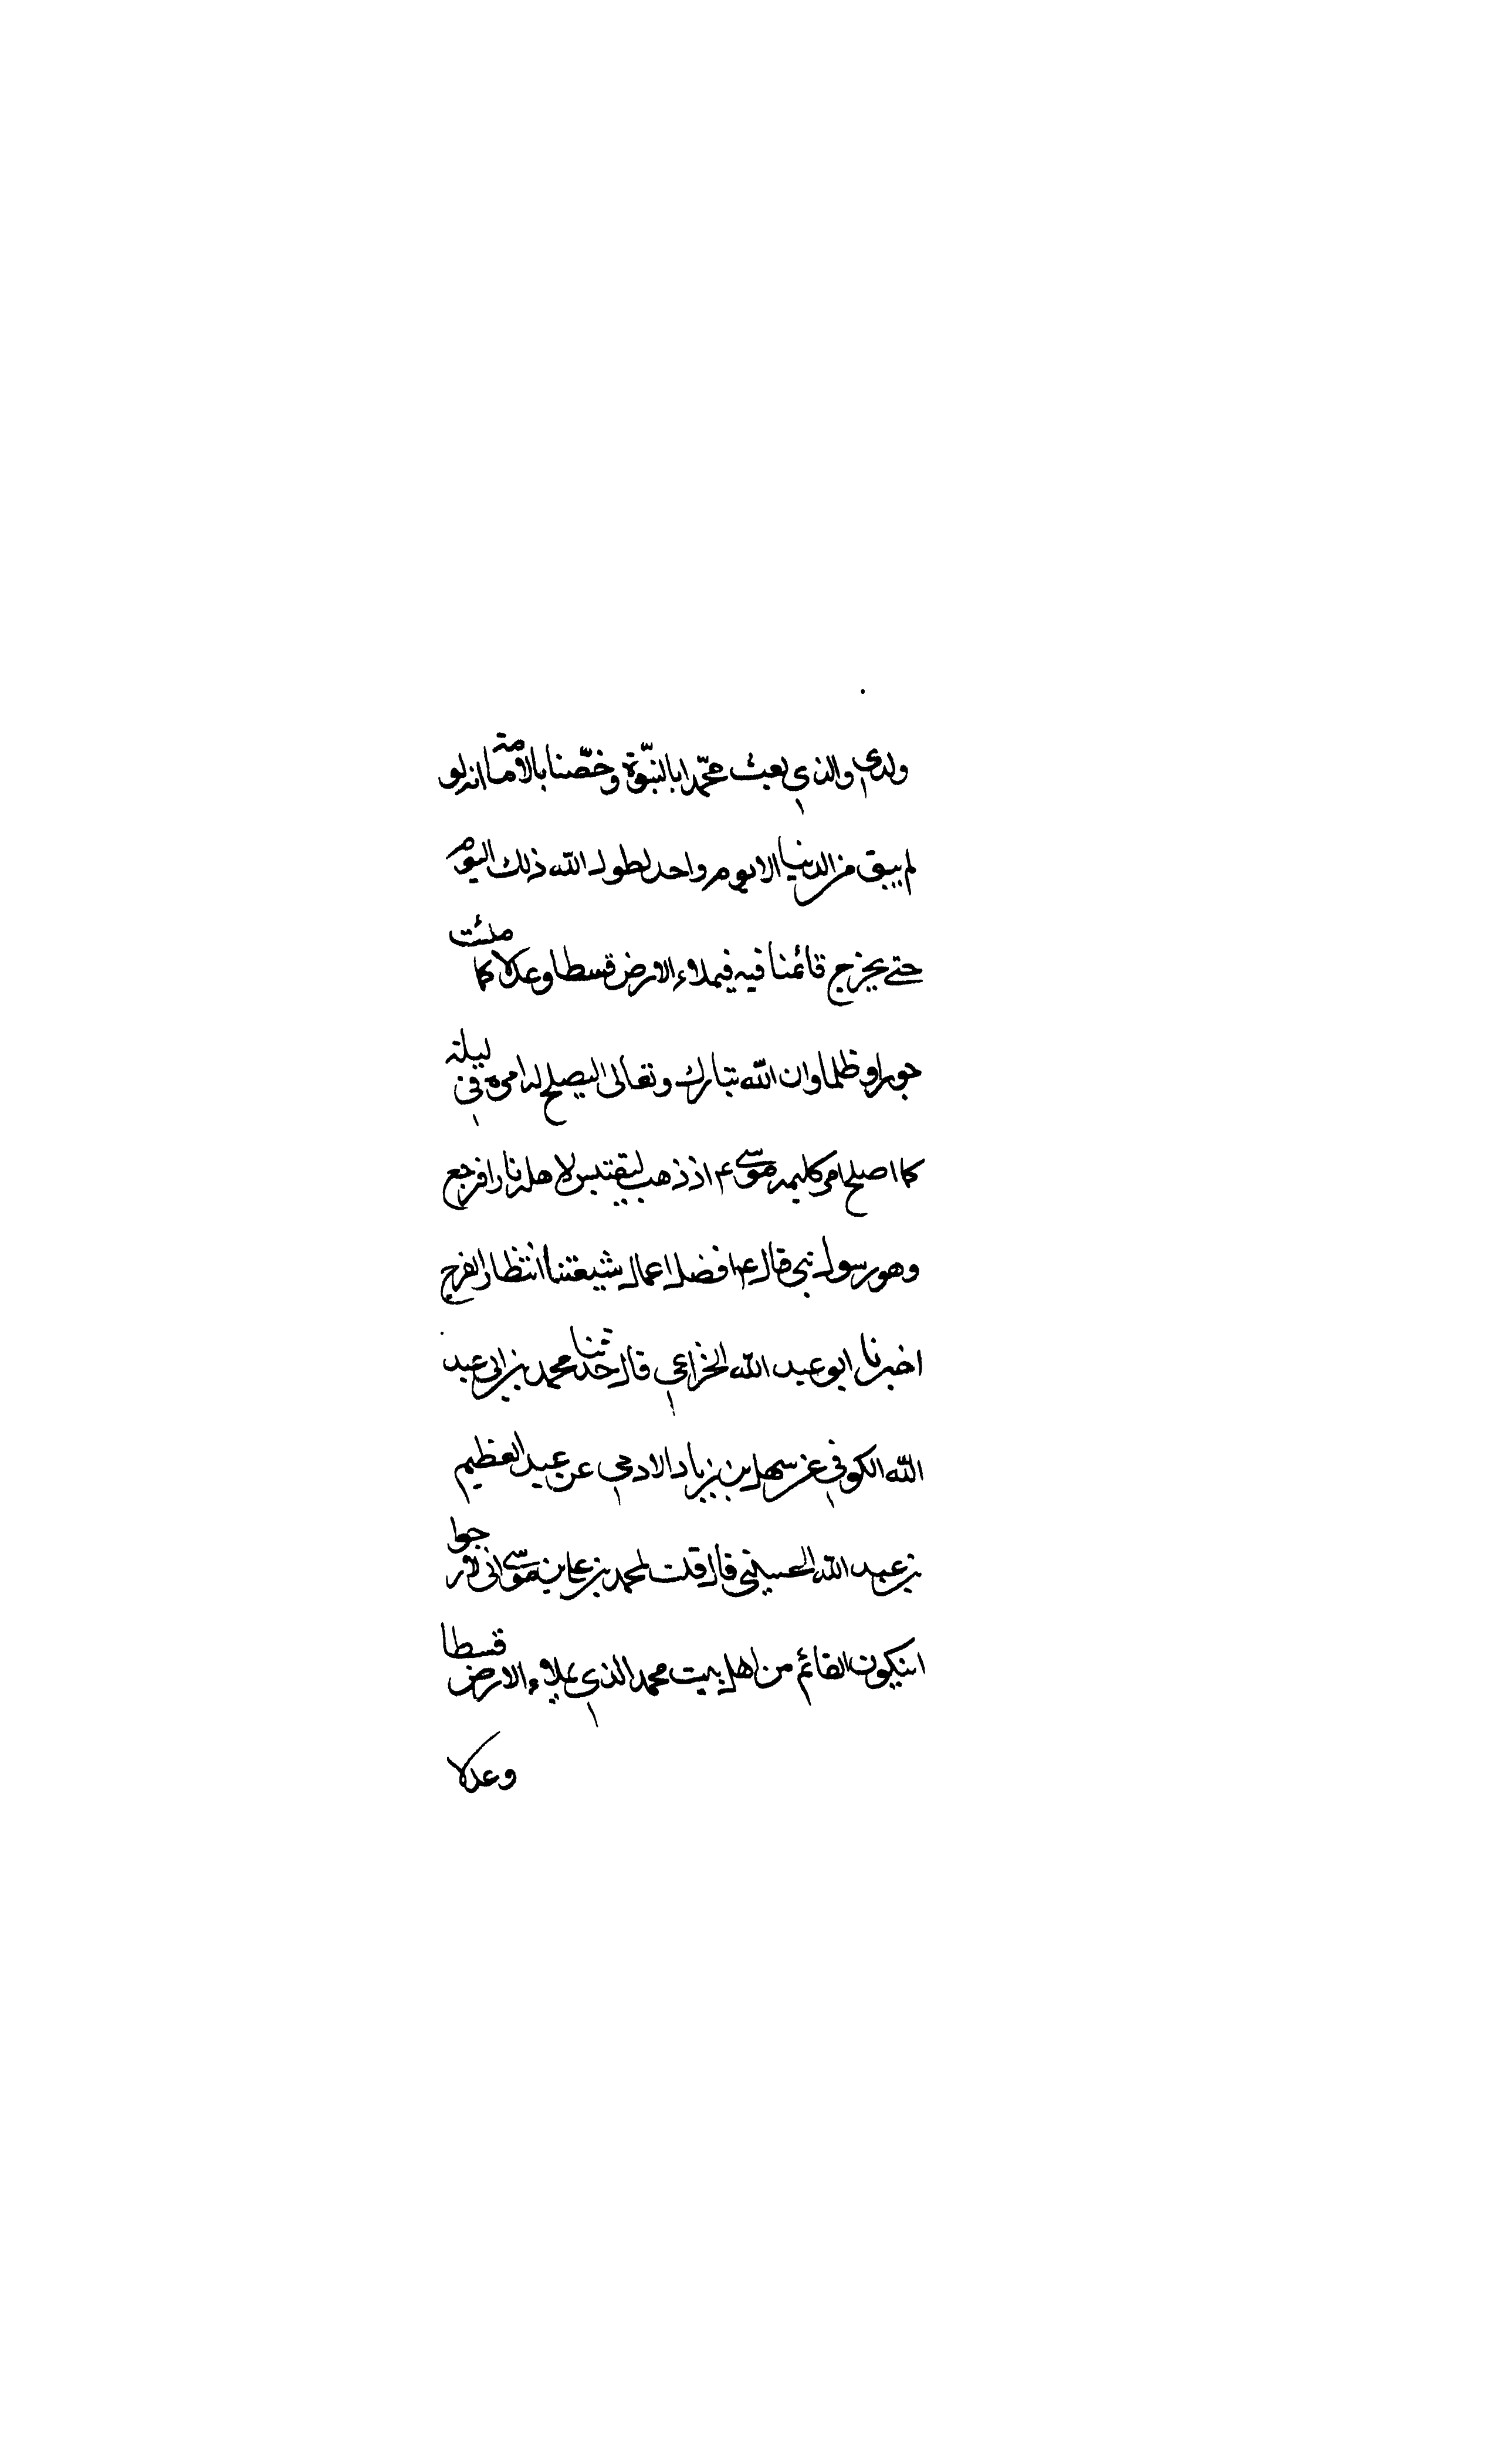 ولدي والذي بعث محمّدا بالنبّوة وخصّنا بالامامة انه لو
لم يبق من الدنيا الا يوم واحد لطول الله ذلك اليوم
حتى يخرج قائمنا فيه فيملاء الارض قسطا وعدلا كما ملئت
جورا وظلما وان الله تبارك وتعالى ليصلح له امره في ليلة
كما اصلح امر كليمه موسى ع اذ ذهب ليقتبس لاهله نارا فرجع
وهو رسول نبي قال ع افضل اعمال شيعتنا انتظار الفرج
اخبرنا ابو عبد الله الخزاعي قال حدثنا محمد بن ابي عبد
الله الكوفي عن سهل بن زياد الادمي عن عبد العظيم
بن عبد الله الحسيني قال قلت لمحمد بن علي بن موسى اني لارجوا
انيكون القائم من اهل بيت محمد الذي يملاء الارض قسطا
وعدلا